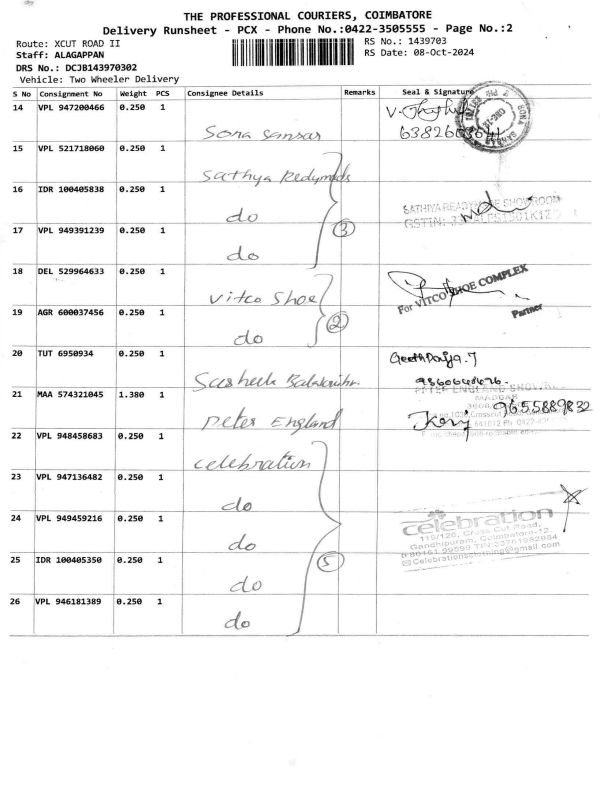 THE PROFESSIONAL COURIERS, COIMBATORE
Delivery Runsheet - PCX - Phone No.:0422-3505555 - Page No.:2
Route: XCUT ROAD II
RS No.: 1439703
Staff: ALAGAPPAN
RS Date: 08-Oct-2024
DRS No.: DCJB143970302
Vehicle: Two Wheeler Delivery
S No Consignment No Weight PCS Consignee Details Remarks Seal & Signature
14 VPL 947200466 0.250 1 Sona Sansar
6382603641
15 VPL 521718060 0.250 1 Sathya Redymads
16 IDR 100405838 0.250 1 do
SATHIYA READYMADE SHOWROOM
17 VPL 949391239 0.250 1 do 3
18 DEL 529964633 0.250 1 Vitco Shoe
For VITCO SHOE COMPLEX
Partner
19 AGR 600037456 0.250 1 do 2
20 TUT 6950934 0.250 1
21 MAA 574321045 1.380 1 Peter England
9655889832
22 VPL 948458683 0.250 1 celebration
23 VPL 947136482 0.250 1 do
24 VPL 949459216 0.250 1 do
celebration
119/120, Cross Cut Road,
Gandhipuram, Coimbatore-12.
25 IDR 100405350 0.250 1 do 5
26 VPL 946181389 0.250 1 do